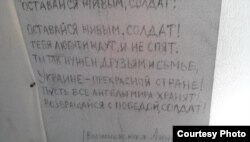 ОСТАВАЙСЯ ЖИВЫМ, СОЛДАТ!
ОСТАВАЙСЯ ЖИВЫМ, СОЛДАТ!
ТЕБЯ ЛЮБЯТ И ЖДУТ, И НЕ СПЯТ.
ТЫ ТАК НУЖЕН ДРУЗЬЯМ И СЕМЬЕ,
УКРАИНЕ – ПРЕКРАСНОЙ СТРАНЕ!
ПУСТЬ ВСЕ АНГЕЛЫ МИРА ХРАНЯТ!
ВОЗВРАЩАЙСЯ С ПОБЕДОЙ, СОЛДАТ!
Courtesy Photo